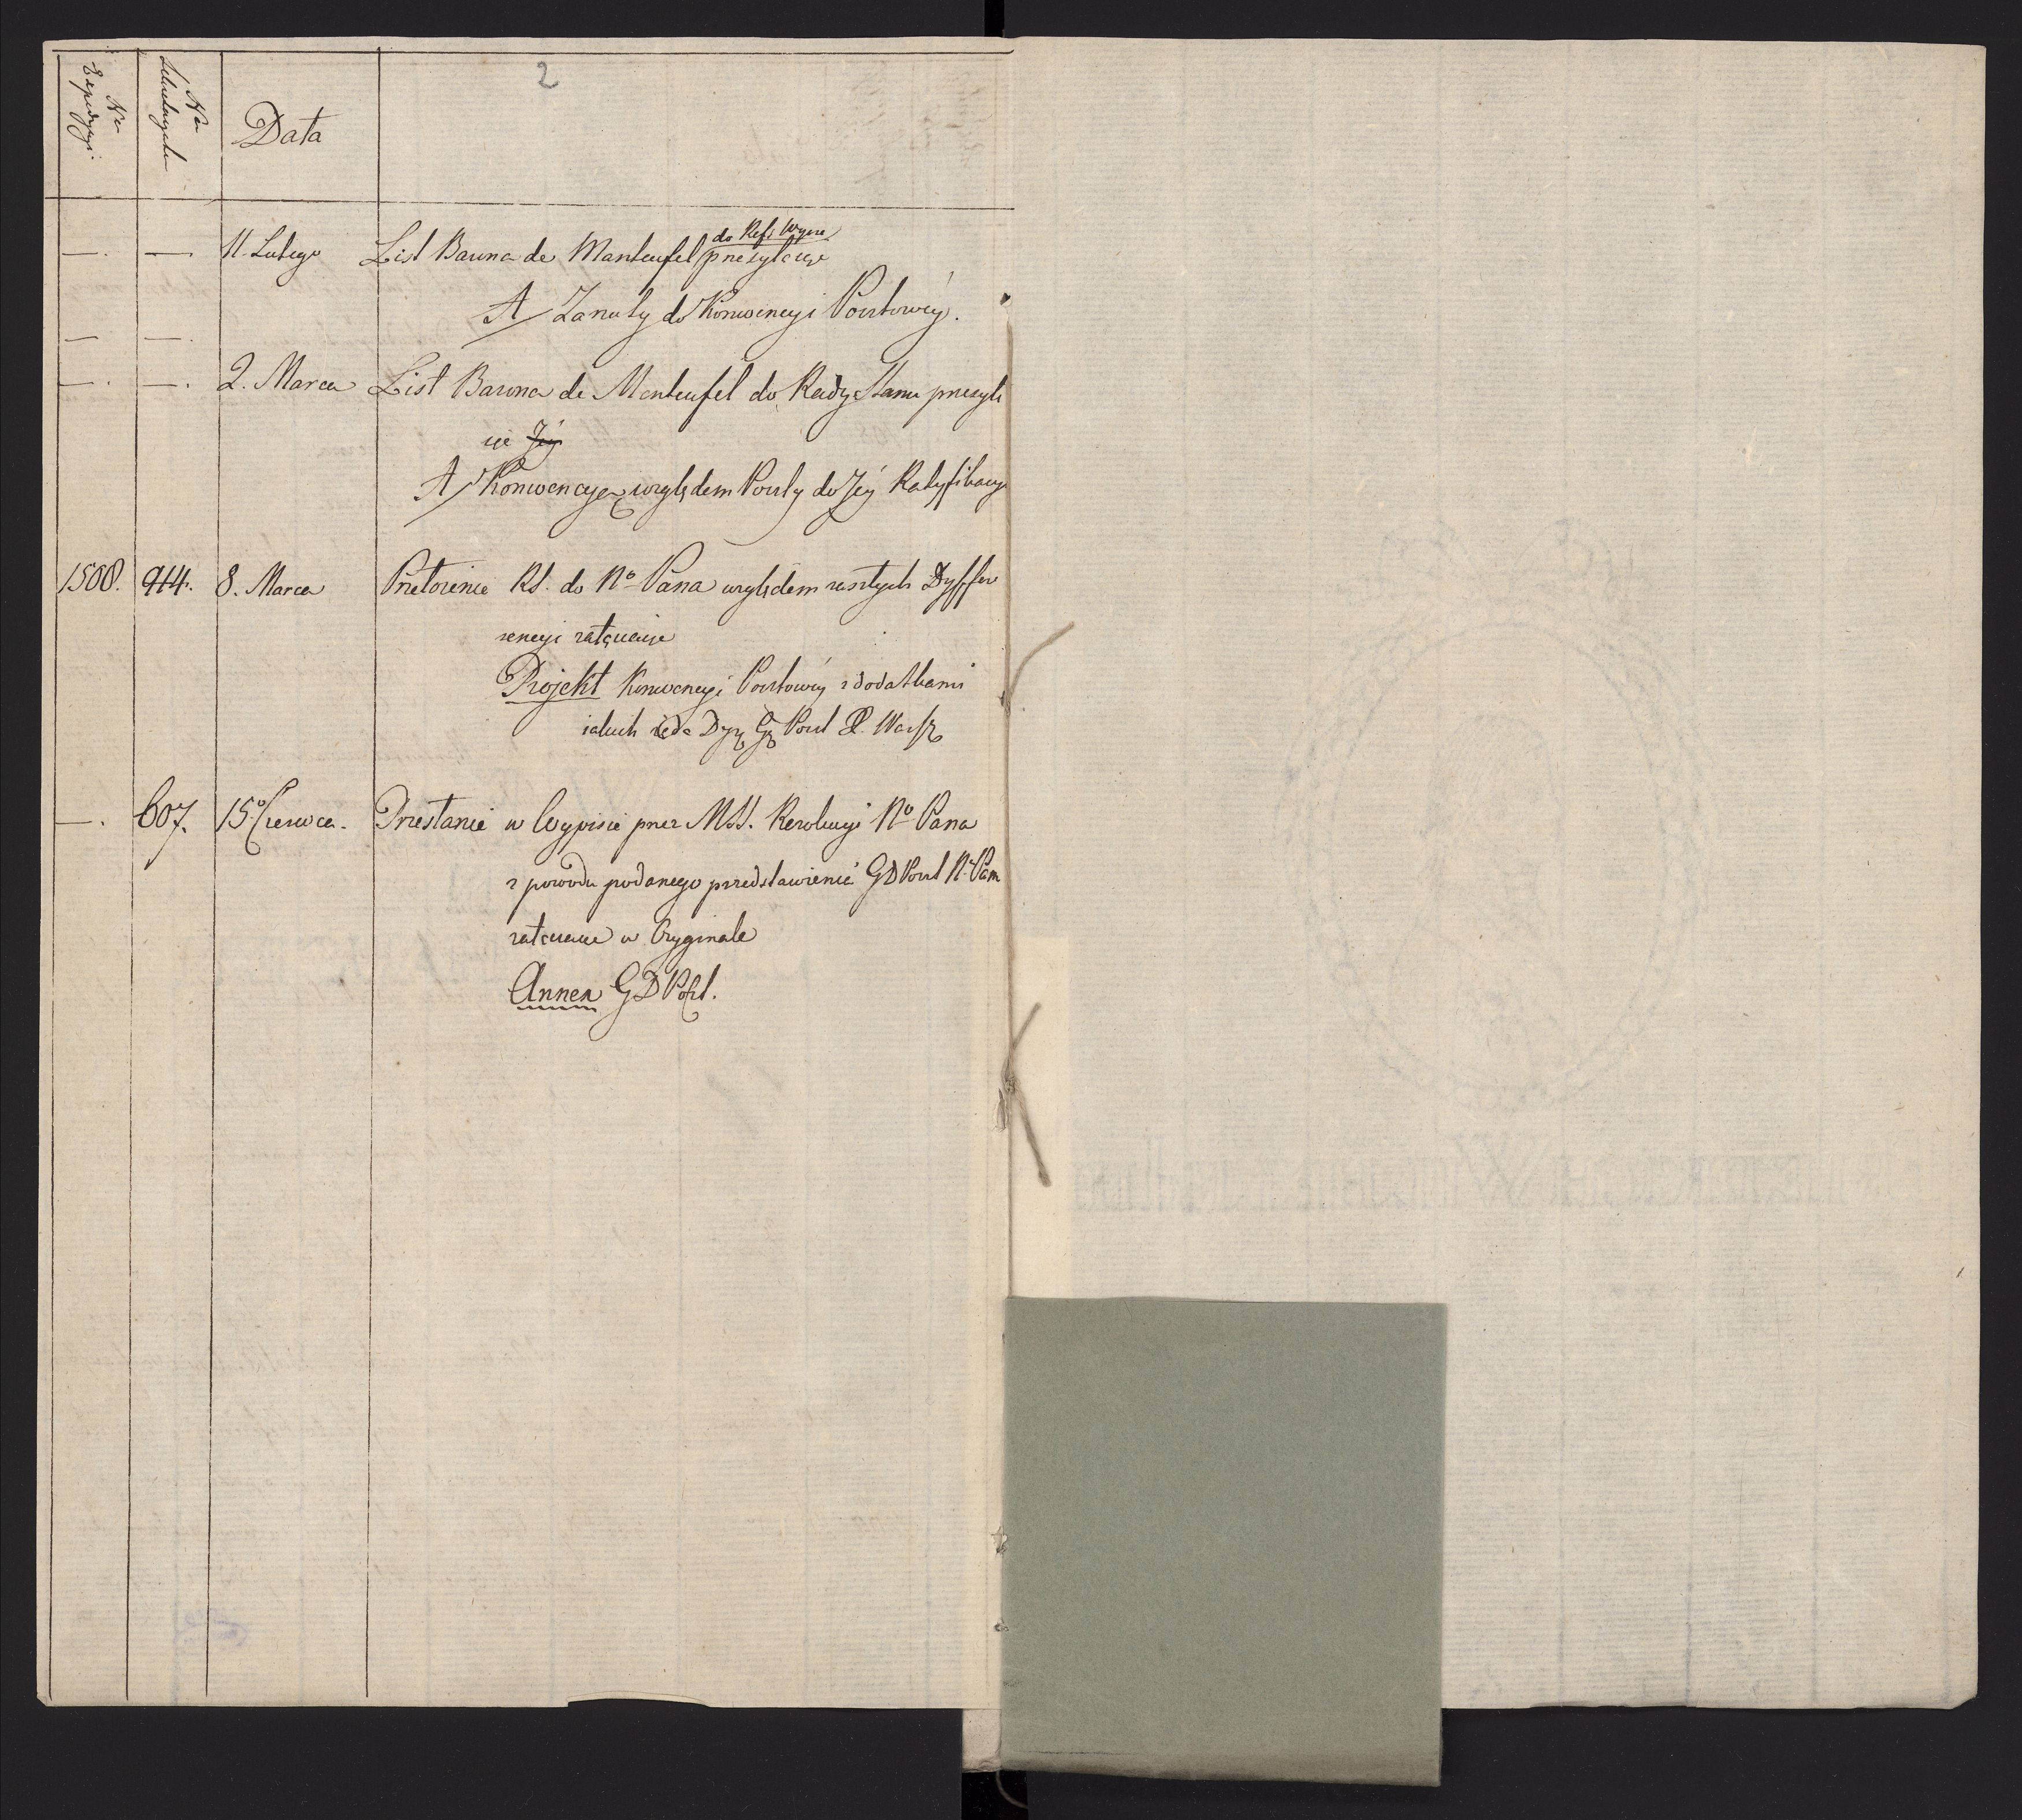 2
Nr Expedycyi.
Nr
Data
—. — 11. Lutego List Barona de Manteufel przesyłaiące
do
A/ Zarzuty do Konwencyi Pocztowéy.
— —.
—. —. 2. Marca List Barona de Manteufel do Rady Stanu przesyła
iąc Jéy
A/ Konwencyą względem Poczty do Jéy Ratyfikacyi
1508. 914. 8. Marca Przełożenie RS. do No Pana względem zaszłych Dyffe
rencyi załączaiące
Projekt Konwencyi Pocztowéy z dodatkami
iakich żąda Dyr Gł Poczt X. Warsz
—. 607. 15o Czerwca. Przesłanie w Wypisie przez MSS. Rezolucyi No Pana
z powodu podanego przedstawienia GD Poczt No Panu
załączaiące w Oryginale
Annex GD Poczt.